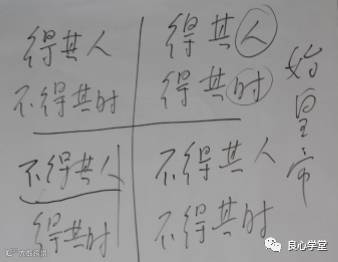 得其人
不得其时
得其人
得其时
不得其人
得其时
不得其人
不得其时
始皇帝
良心学堂